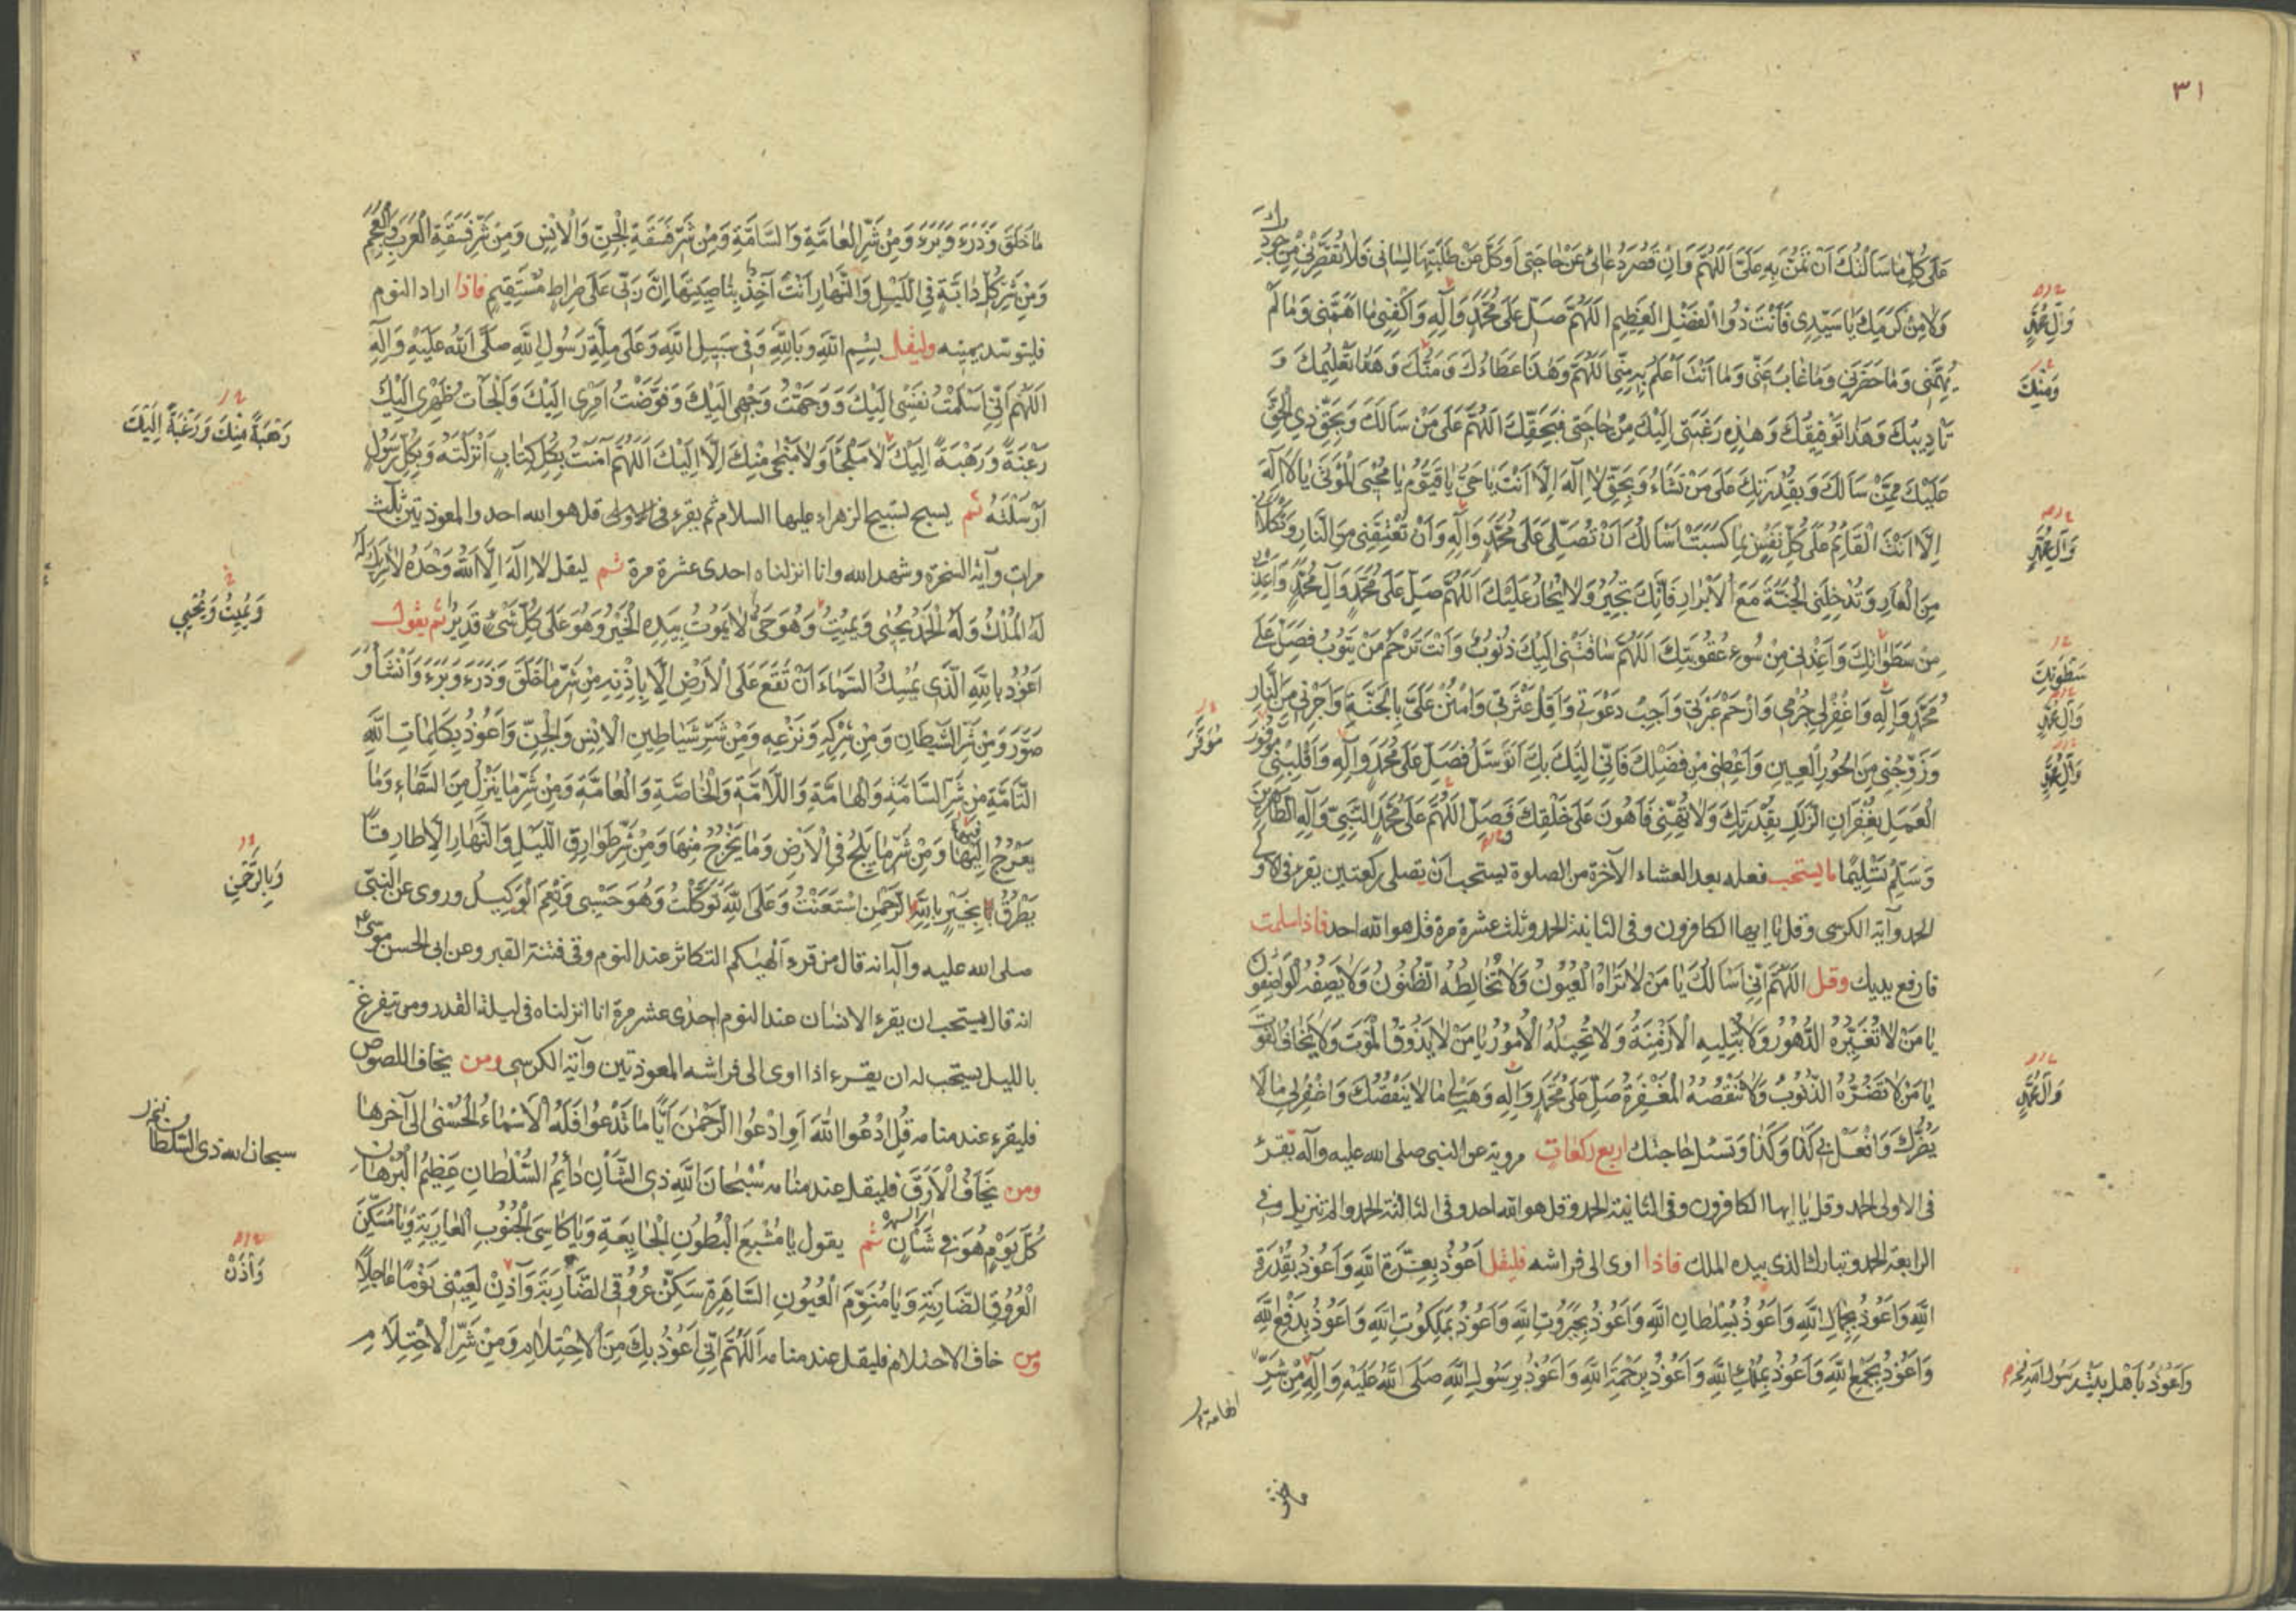 ٣١
عَلَى كُلِّ مَا سَأَلْتُكَ أَنْ تَمُنَّ بِهِ عَلَيَّ اَللّٰهُمَّ وَاِنْ قَصُرَ دُعَائِي عَنْ حَاجَتِي أَوْ كَلَّ عَنْ طَلَبِهَا لِسَانِي فَلَا تُقَصِّرْنِي مِنْ جُودِكَ
وَلَا مِنْ كَرَمِكَ يَا سَيِّدِي فَأَنْتَ ذُو الْفَضْلِ الْعَظِيمِ اَللّٰهُمَّ صَلِّ عَلَى مُحَمَّدٍ وَآلِهِ وَاكْفِنِي مَا اَهَمَّنِي وَمَا لَمْ
وَآلِ مُحَمَّدٍ
يُهِمَّنِي وَمَا حَضَرَنِي وَمَا غَابَ عَنِّي وَمَا اَنْتَ اَعْلَمُ بِهِ مِنِّي اَللّٰهُمَّ وَهٰذَا عَطَاؤُكَ وَمَنُّكَ وَهٰذَا تَعْلِيمُكَ وَ
وَمِنْكَ
تَأْدِيبُكَ وَهٰذَا تَوْفِيقُكَ وَهٰذِهِ رَغْبَتِي اِلَيْكَ مِنْ حَاجَتِي فَبِحَقِّكَ اَللّٰهُمَّ عَلَى مَنْ سَأَلَكَ وَبِحَقِّ ذِي الْحَقِّ
عَلَيْكَ مِمَّنْ سَأَلَكَ وَبِقُدْرَتِكَ عَلَى مَنْ تَشَاءُ وَبِحَقِّ لَا اِلٰهَ اِلَّا اَنْتَ يَا حَيُّ يَا قَيُّومُ يَا مُحْيِيَ الْمَوْتَى يَا لَا اِلٰهَ
اِلَّا اَنْتَ الْقَائِمُ عَلَى كُلِّ نَفْسٍ بِمَا كَسَبَتْ اَسْأَلُكَ اَنْ تُصَلِّيَ عَلَى مُحَمَّدٍ وَآلِهِ وَأَنْ تُعْتِقَنِي مِنَ النَّارِ وَتَكْلَأَنِي
وَآلِ مُحَمَّدٍ
مِنَ الْعَارِ وَتُدْخِلَنِي الْجَنَّةَ مَعَ الْاَبْرَارِ فَاِنَّكَ تُجِيرُ وَلَا يُجَارُ عَلَيْكَ اَللّٰهُمَّ صَلِّ عَلَى مُحَمَّدٍ وَآلِ مُحَمَّدٍ وَأَعِذْنِي
مِنْ سَطَوَاتِكَ وَاَعِذْنِي مِنْ سُوءِ عُقُوبَتِكَ اَللّٰهُمَّ سَاقَتْنِي اِلَيْكَ ذُنُوبٌ وَاَنْتَ تَرْحَمُ مَنْ يَتُوبُ فَصَلِّ عَلَى
سَطْوَتِكَ
مُحَمَّدٍ وَآلِهِ وَاغْفِرْ لِي جُرْمِي وَارْحَمْ عَبْرَتِي وَاَجِبْ دَعْوَتِي وَاَقِلْ عَثْرَتِي وَامْنُنْ عَلَيَّ بِالْجَنَّةِ وَاَجِرْنِي مِنَ النَّارِ
وَآلِ مُحَمَّدٍ
وَزَوِّجْنِي مِنَ الْحُورِ الْعِينِ وَاَعْطِنِي مِنْ فَضْلِكَ فَاِنِّي اِلَيْكَ بِكَ اَتَوَسَّلُ فَصَلِّ عَلَى مُحَمَّدٍ وَآلِهِ وَاَقْلِبْنِي مَوْفُورَ
وَآلِ مُحَمَّدٍ
مُوَفَّرَ
الْعَمَلِ بِغُفْرَانِ الزَّلَلِ بِقُدْرَتِكَ وَلَا تُهِنِّي فَاَهُونَ عَلَى خَلْقِكَ وَصَلِّ اللّٰهُمَّ عَلَى مُحَمَّدٍ النَّبِيِّ وَآلِهِ الطَّاهِرِينَ
وَسَلِّمْ تَسْلِيمًا ما يستحب فعله بعد العشاء الآخرة من الصلوة يستحب ان يصلى ركعتين يقرء فى الاولى
الحمد وآية الكرسى وقل يا ايها الكافرون وفى الثانية الحمد وثلث عشرة مرة قل هو الله احد فاذا سلمت
فارفع يديك وقل اَللّٰهُمَّ اِنِّي اَسْأَلُكَ يَا مَنْ لَا تَرَاهُ الْعُيُونُ وَلَا تُخَالِطُهُ الظُّنُونُ وَلَا يَصِفُهُ الْوَاصِفُونَ
يَا مَنْ لَا تُغَيِّرُهُ الدُّهُورُ وَلَا تُبْلِيهِ الْاَزْمِنَةُ وَلَا تُحِيلُهُ الْاُمُورُ يَا مَنْ لَا يَذُوقُ الْمَوْتَ وَلَا يَخَافُ الْفَوْتَ
يَا مَنْ لَا تَضُرُّهُ الذُّنُوبُ وَلَا تَنْقُصُهُ الْمَغْفِرَةُ صَلِّ عَلَى مُحَمَّدٍ وَآلِهِ وَهَبْ لِي مَا لَا يَنْقُصُكَ وَاغْفِرْ لِي مَا لَا
وَآلِ مُحَمَّدٍ
يَضُرُّكَ وَافْعَلْ بِي كَذَا وَكَذَا وَتَسْئَلُ حَاجَتَكَ اربع ركعات مروية عن النبى صلى الله عليه وآله يقرء
فى الاولى الحمد وقل يا ايها الكافرون وفى الثانية الحمد وقل هو الله احد وفى الثالثة الحمد والم تنزيل وفى
الرابعة الحمد وتبارك الذى بيده الملك فاذا اوى الى فراشه فليقل اَعُوذُ بِعِزَّةِ اللّٰهِ وَاَعُوذُ بِقُدْرَةِ
اللّٰهِ وَاَعُوذُ بِجَمَالِ اللّٰهِ وَاَعُوذُ بِسُلْطَانِ اللّٰهِ وَاَعُوذُ بِجَبَرُوتِ اللّٰهِ وَاَعُوذُ بِمَلَكُوتِ اللّٰهِ وَاَعُوذُ بِدَفْعِ اللّٰهِ
وَاَعُوذُ بِجَمْعِ اللّٰهِ وَاَعُوذُ بِمُلْكِ اللّٰهِ وَاَعُوذُ بِرَحْمَةِ اللّٰهِ وَاَعُوذُ بِرَسُولِ اللّٰهِ صَلَّى اللّٰهُ عَلَيْهِ وَآلِهِ مِنْ شَرِّ
وَاَعُوذُ بِاَهْلِ بَيْتِ رَسُولِ اللهِ
ما خلق
مَا خَلَقَ وَذَرَءَ وَبَرَءَ وَمِنْ شَرِّ الْعَامَّةِ وَالسَّامَّةِ وَمِنْ شَرِّ فَسَقَةِ الْجِنِّ وَالْاِنْسِ وَمِنْ شَرِّ فَسَقَةِ الْعَرَبِ وَالْعَجَمِ
وَمِنْ شَرِّ كُلِّ دَابَّةٍ فِي اللَّيْلِ وَالنَّهَارِ اَنْتَ آخِذٌ بِنَاصِيَتِهَا اِنَّ رَبِّي عَلَى صِرَاطٍ مُسْتَقِيمٍ فاذا اراد النوم
فليتوسد يمينه وليقل بِسْمِ اللّٰهِ وَبِاللّٰهِ وَفِي سَبِيلِ اللّٰهِ وَعَلَى مِلَّةِ رَسُولِ اللّٰهِ صَلَّى اللّٰهُ عَلَيْهِ وَآلِهِ
اَللّٰهُمَّ اِنِّي اَسْلَمْتُ نَفْسِي اِلَيْكَ وَوَجَّهْتُ وَجْهِي اِلَيْكَ وَفَوَّضْتُ اَمْرِي اِلَيْكَ وَاَلْجَأْتُ ظَهْرِي اِلَيْكَ
رَهْبَةً مِنْكَ وَرَغْبَةً اِلَيْكَ
رَغْبَةً وَرَهْبَةً اِلَيْكَ لَا مَلْجَأَ وَلَا مَنْجَى مِنْكَ اِلَّا اِلَيْكَ اَللّٰهُمَّ آمَنْتُ بِكُلِّ كِتَابٍ اَنْزَلْتَهُ وَبِكُلِّ رَسُولٍ
اَرْسَلْتَهُ ثم يسبح تسبيح الزهراء عليها السلام ثم يقرء قل هو الله احد والمعوذتين ثلث
مرات وآية السخرة وشهد الله وانا انزلناه احدى عشرة مرة ثم ليقل لَا اِلٰهَ اِلَّا اللّٰهُ وَحْدَهُ لَا شَرِيكَ لَهُ
لَهُ الْمُلْكُ وَلَهُ الْحَمْدُ يُحْيِي وَيُمِيتُ وَهُوَ حَيٌّ لَا يَمُوتُ بِيَدِهِ الْخَيْرُ وَهُوَ عَلَى كُلِّ شَيْءٍ قَدِيرٌ ثم يقول
وَيُمِيتُ وَيُحْيِي
اَعُوذُ بِاللّٰهِ الَّذِي يُمْسِكُ السَّمَاءَ اَنْ تَقَعَ عَلَى الْاَرْضِ اِلَّا بِاِذْنِهِ مِنْ شَرِّ مَا خَلَقَ وَذَرَءَ وَبَرَءَ وَاَنْشَأَ وَ
صَوَّرَ وَمِنْ شَرِّ الشَّيْطَانِ وَمِنْ شَرَكِهِ وَنَزْغِهِ وَمِنْ شَرِّ شَيَاطِينِ الْاِنْسِ وَالْجِنِّ وَاَعُوذُ بِكَلِمَاتِ اللّٰهِ
التَّامَّةِ مِنْ شَرِّ السَّامَّةِ وَالْهَامَّةِ وَاللَّامَّةِ وَالْخَاصَّةِ وَالْعَامَّةِ وَمِنْ شَرِّ مَا يَنْزِلُ مِنَ السَّمَاءِ وَمَا
يَعْرُجُ فِيهَا وَمِنْ شَرِّ مَا يَلِجُ فِي الْاَرْضِ وَمَا يَخْرُجُ مِنْهَا وَمِنْ شَرِّ طَوَارِقِ اللَّيْلِ وَالنَّهَارِ اِلَّا طَارِقًا
يَطْرُقُ بِخَيْرٍ بِاللّٰهِ الرَّحْمٰنِ اسْتَعَنْتُ وَعَلَى اللّٰهِ تَوَكَّلْتُ وَهُوَ حَسْبِي وَنِعْمَ الْوَكِيلُ وروى عن النبى
وَبِالرَّحْمٰنِ
صلى الله عليه وآله انه قال من قرء الهيكم التكاثر عند النوم وقى فتنة القبر وعن ابى الحسن موسى
انه قال يستحب ان يقرء الانسان عند النوم احدى عشر مرة انا انزلناه فى ليلة القدر ومن يتفزع
بالليل يستحب له ان يقرء اذا اوى الى فراشه المعوذتين وآية الكرسى ومن يخاف اللصوص
فليقرء عند منامه قُلِ ادْعُوا اللّٰهَ اَوِ ادْعُوا الرَّحْمٰنَ اَيًّا مَا تَدْعُوا فَلَهُ الْاَسْمَاءُ الْحُسْنٰى الى آخرها
سبحان الله ذى السلطان
ومن يَخَافُ الْاَرَقَ فليقل عند منامه سُبْحَانَ اللّٰهِ ذِي الشَّأْنِ دَائِمِ السُّلْطَانِ عَظِيمِ الْبُرْهَانِ
كُلَّ يَوْمٍ هُوَ فِي شَأْنٍ ثم يقول يَا مُشْبِعَ الْبُطُونِ الْجَائِعَةِ وَيَا كَاسِيَ الْجُنُوبِ الْعَارِيَةِ وَيَا مُسَكِّنَ
الْعُرُوقِ الضَّارِبَةِ وَيَا مُنَوِّمَ الْعُيُونِ السَّاهِرَةِ سَكِّنْ عُرُوقِي الضَّارِبَةَ وَآذِنْ لِعَيْنِي نَوْمًا عَاجِلًا
وَأْذَنْ
ومن خاف الاحتلام فليقل عند منامه اَللّٰهُمَّ اِنِّي اَعُوذُ بِكَ مِنَ الْاِحْتِلَامِ وَمِنْ شَرِّ الْاَحْتِلَامِ